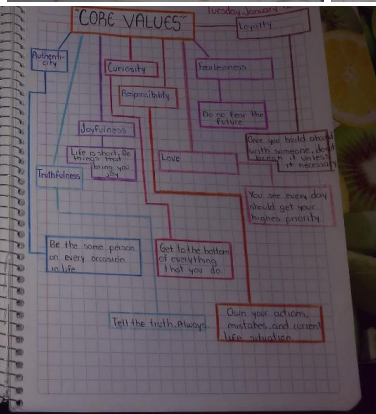 Tuesday January
"CORE VALUES"
Loyalty
Authenti-
city
Curiosity
Fearlessness
Responsibility
Do no fear the
future
Joyfulness
Life is short. Do
things that
bring you
joy
Love
Once you build
with someone, don't
break it unless
it necessary
Truthfulness
You see every day
should get your
highes priority.
Be the same person
on every occasion
in life.
Get to the bottom
of everything
that you do.
Tell the truth. Always
Own your actions,
mistakes, and current
life situation